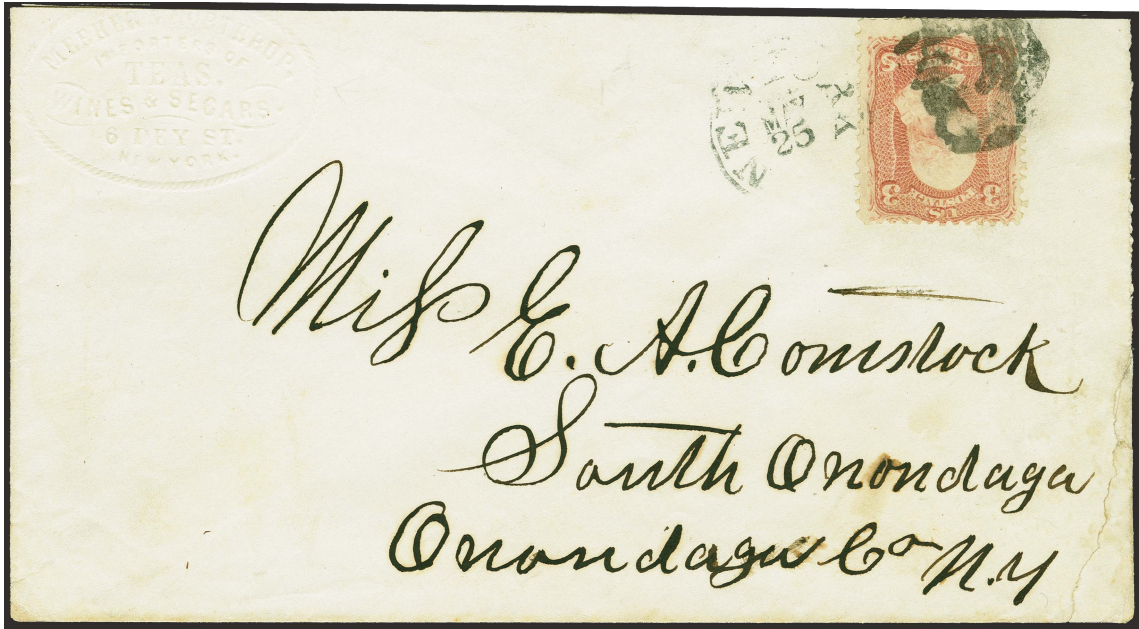 IMPORTERS OF
TEAS.
WINES & SEGARS
6 DEY ST.
NEW YORK.
NEW YORK
MAY
25
3 3
U.S.
POSTAGE
Miss E. A. Comstock
South Onondaga
Onondaga Co N.Y